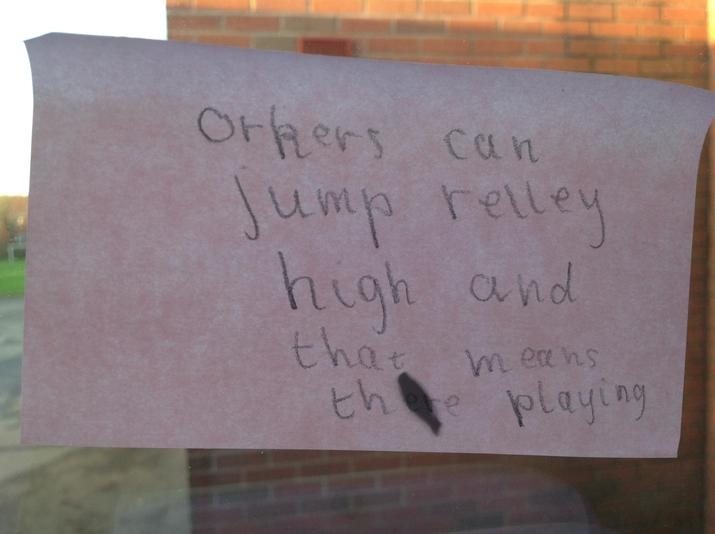 Orkers can
jump relley
high and
that means
there playing